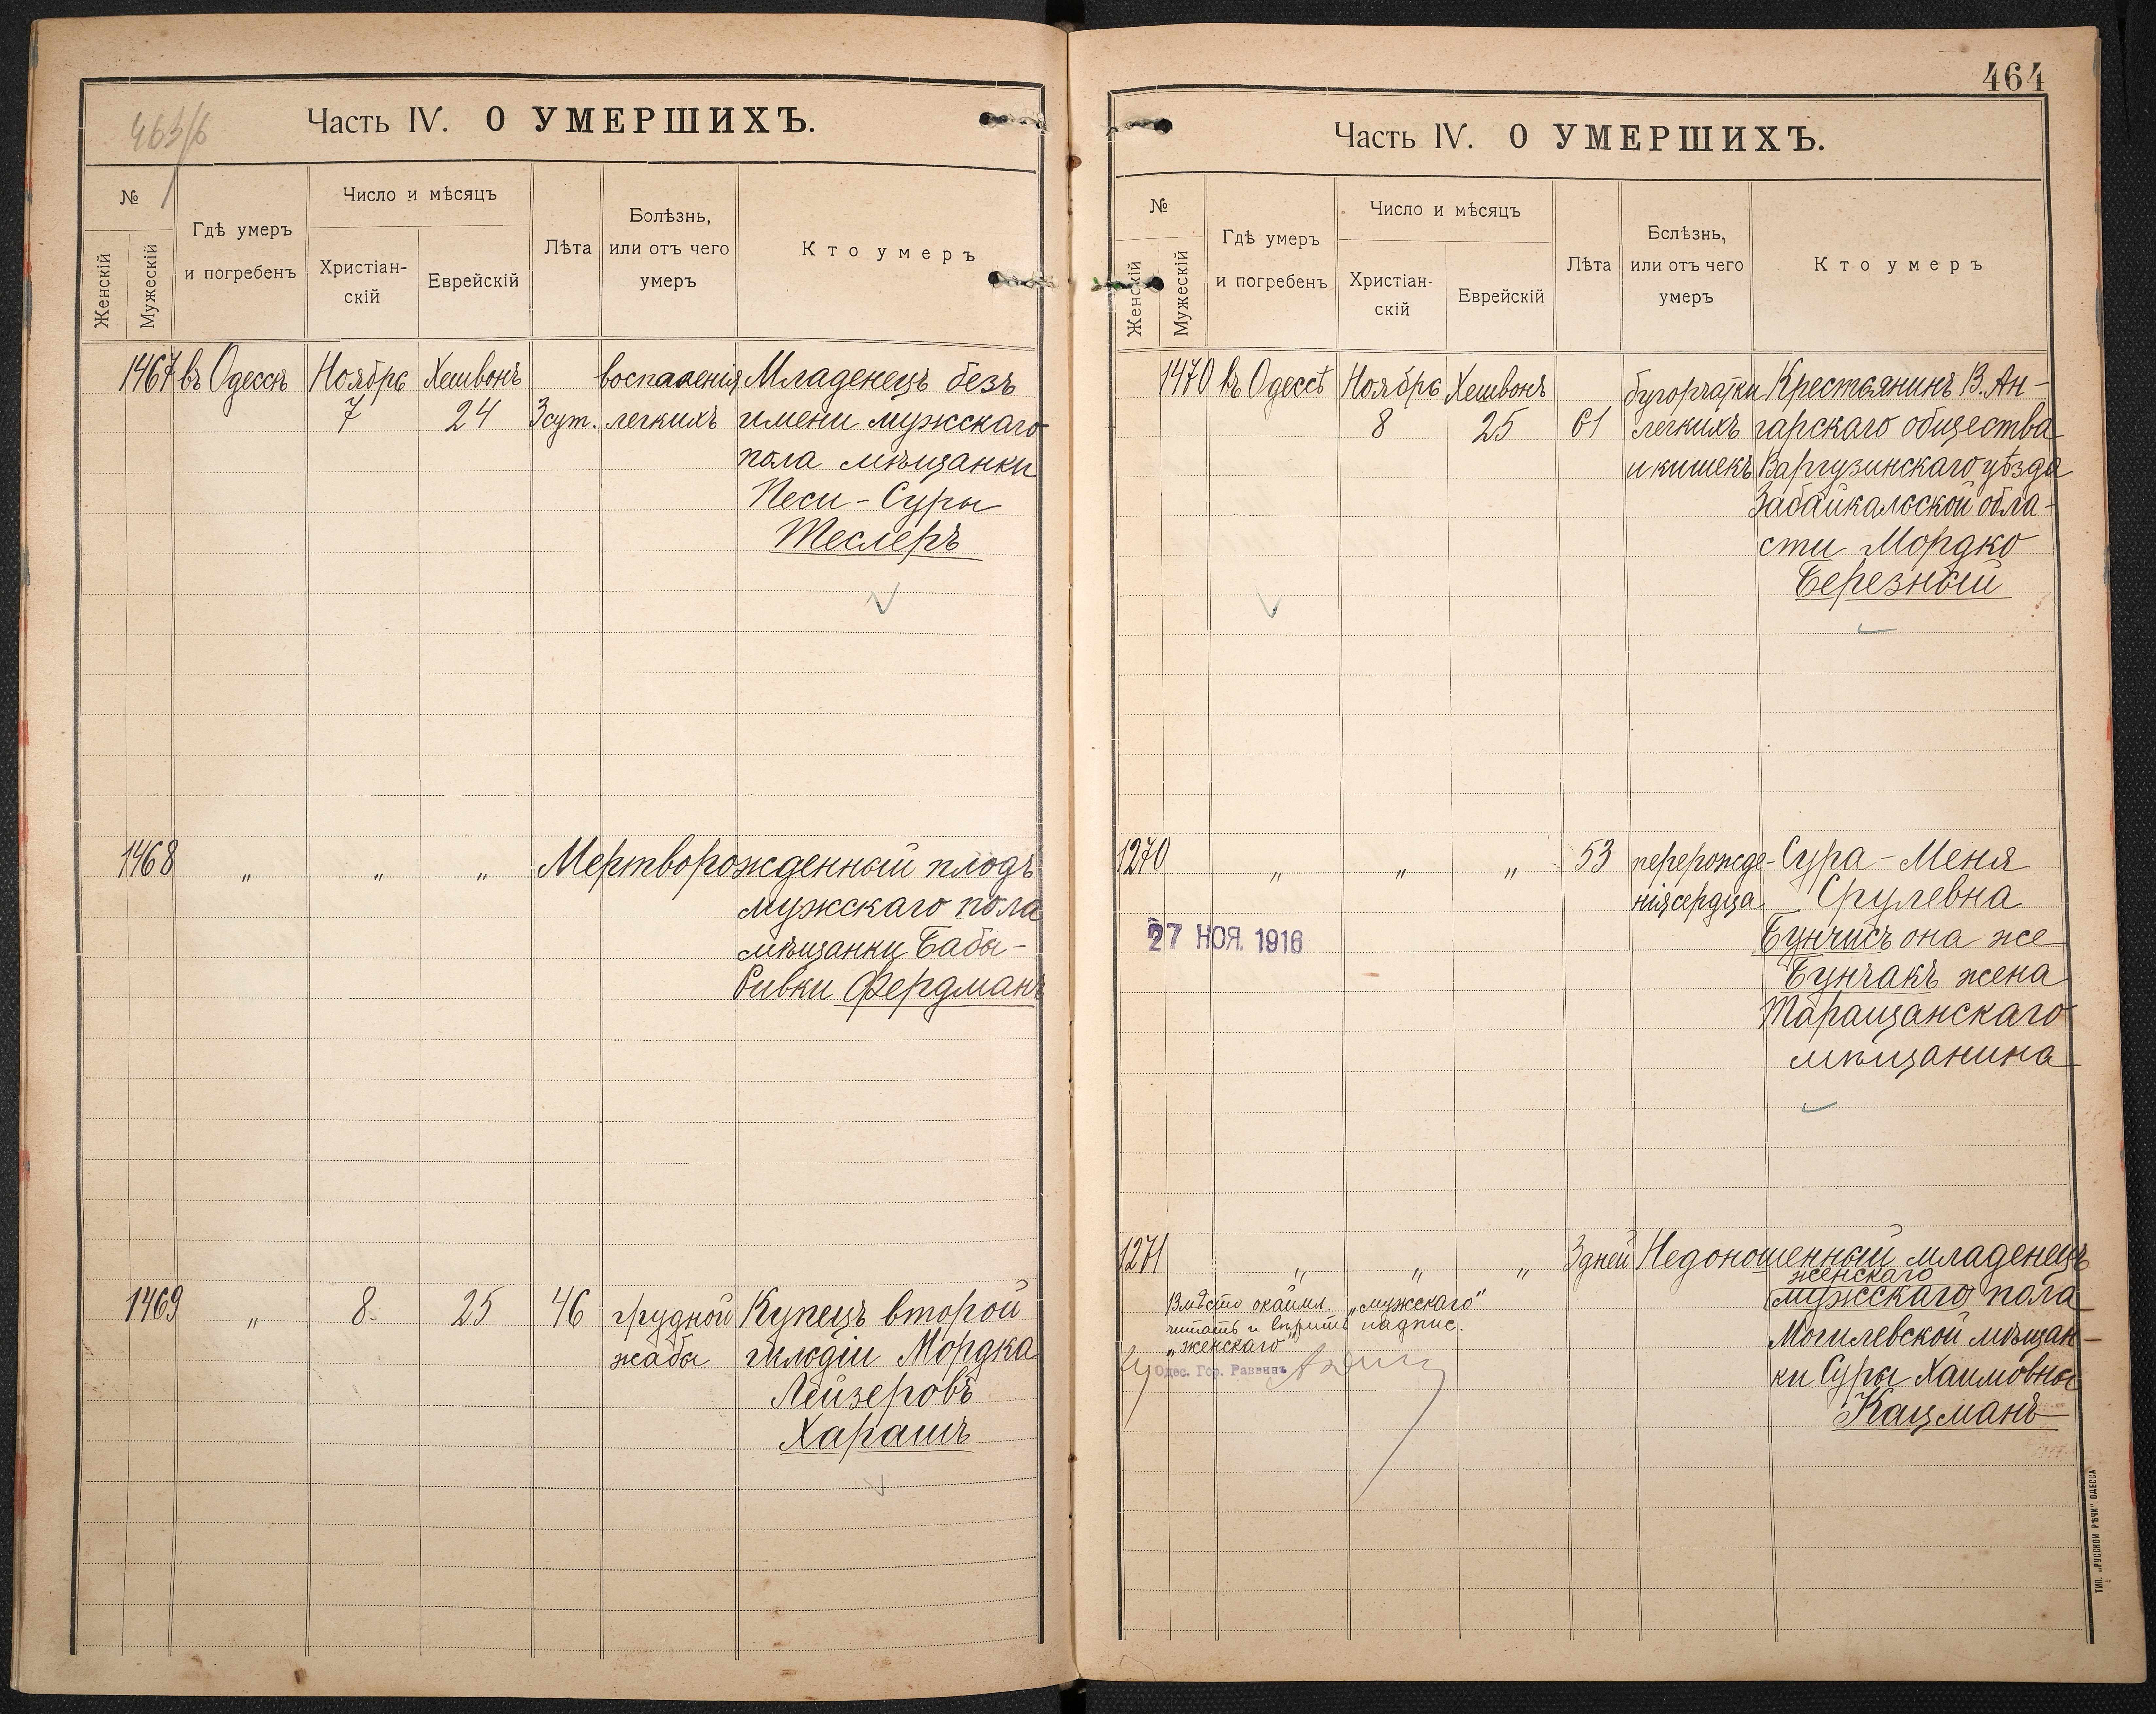 463/б
Часть IV. О УМЕРШИХЪ.
№
Женскій
Мужескій
Гдѣ умеръ
и погребенъ
Число и мѣсяцъ
Христіан-
скій
Еврейскій
Лѣта
Болѣзнь,
или отъ чего
умеръ
Кто умеръ
1467 въ Одессѣ Ноябрь Хешвонъ воспаленія Младенецъ безъ
7 24 3 сут. легкихъ имени мужскаго
пола мѣщанки
Песи-Суры
Теслеръ
1468 " " " Мертворожденный плодъ
мужскаго пола
мѣщанки Бабы-
Ривки Фердманъ
1469 " 8. 25 46 грудной Купецъ второй
жабы гильдіи Мордка
Лейзеровъ
Харашъ
464
Часть IV. О УМЕРШИХЪ.
№
Женскій
Мужескій
Гдѣ умеръ
и погребенъ
Число и мѣсяцъ
Христіан-
скій
Еврейскій
Лѣта
Бслѣзнь,
или отъ чего
умеръ
Кто умеръ
1470 въ Одессѣ Ноябрь Хешвонъ бугорчатки Крестьянинъ В. Ан-
8 25 61 легкихъ гарскаго общества
и кишекъ Баргузинскаго уѣзда
Забайкальской обла-
сти Мордко
Березный
1270 " " " 53 перерожде- Сура-Меня
нія сердца Срулевна
27 НОЯ. 1916
Бунчисъ она же
Бунчакъ жена
Таращанскаго
мѣщанина
1271 " " " 3 дней Недоношенный младенецъ
женскаго
мужскаго пола
Могилевской мѣщан-
ки Суры Хаимовны
Кацманъ
Вмѣсто окайм. „мужскаго"
читать и вѣрить надпис.
„женскаго"
Одес. Гор. Раввинъ
ТИП. „РУССКОЙ РѢЧИ" ОДЕССА